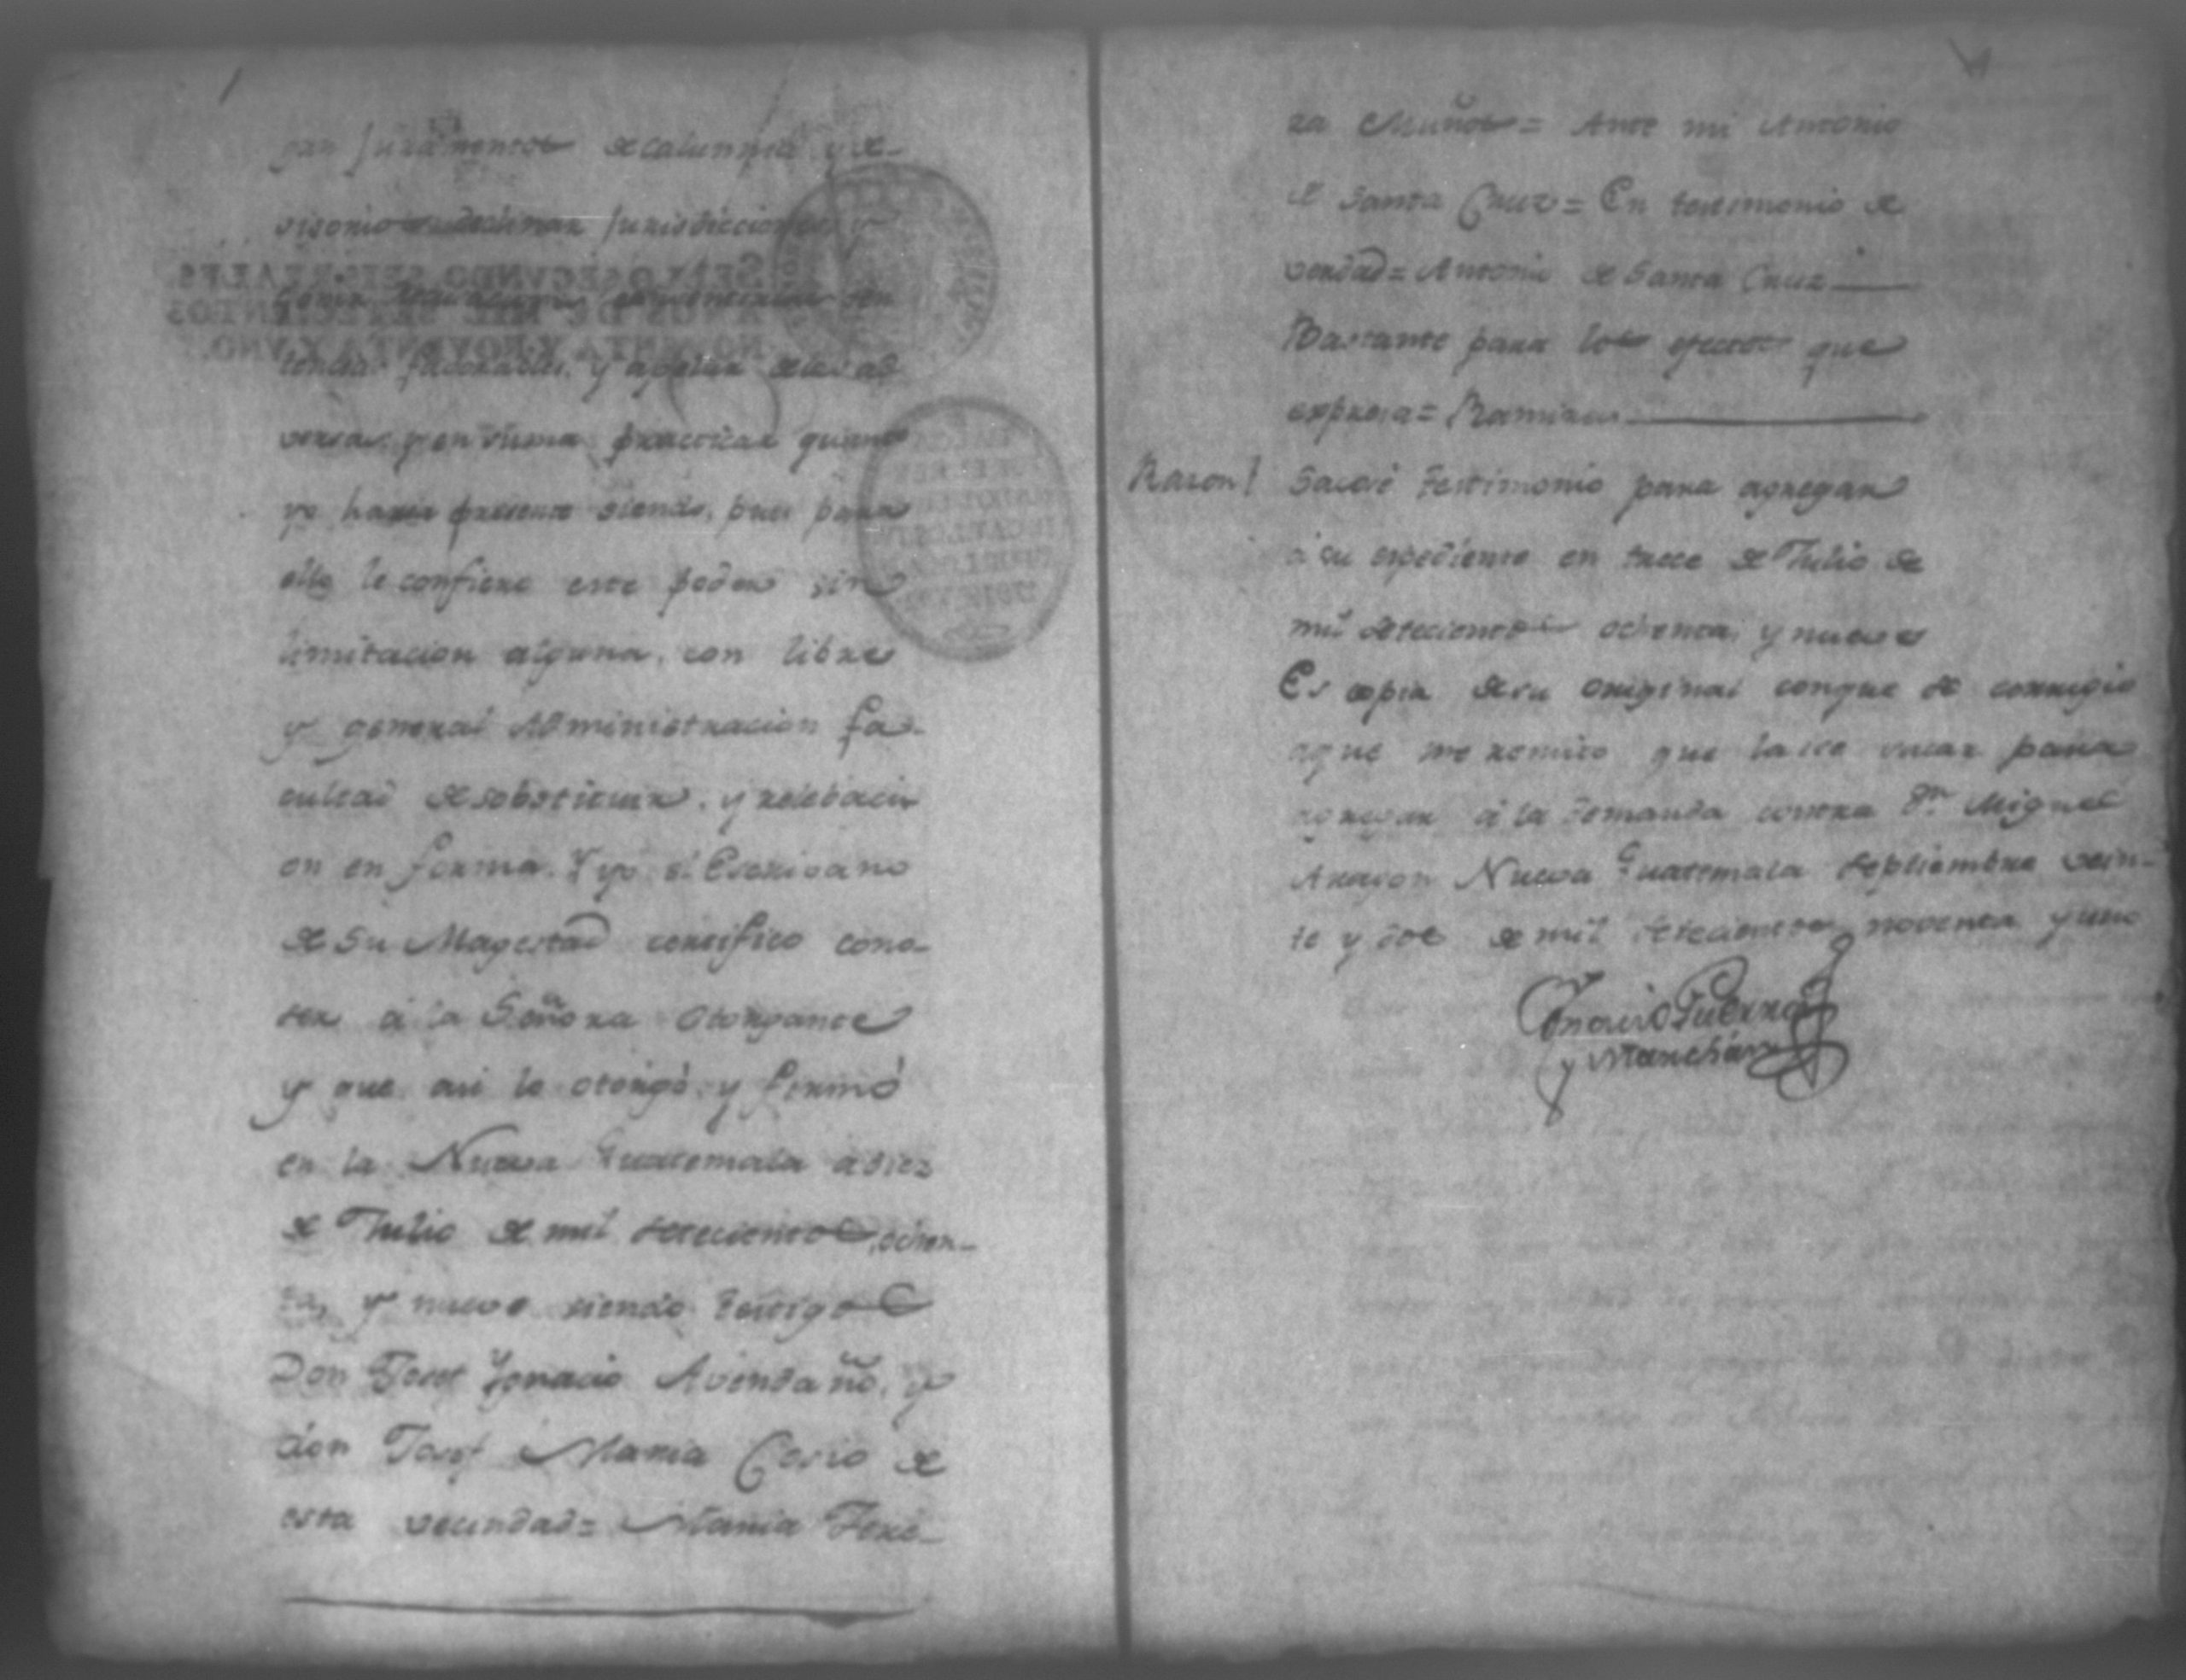 gan Juramentos de calumnia y de-
visorio declinar Jurisdicciones y
tencias favorables, y apelar de las ad
versas, y en suma practicar quant
yo haria presente siendo, pues para
ello le confiere este poder sin
limitacion alguna, con libre
y general Administracion fa-
cultad de sobstituir, y relebaci
on en forma. Y yo el Escrivano
de Su Magestad certifico cono-
ser á la Señora Otorgante
y que asi lo otorgó, y firmó
en la Nueva Guatemala a diez
de Julio de mil setecientos, ochen-
ta, y nueve siendo testigos
Don Josef Ygnacio Avendaño, y
don Josef Maria Cosio de
esta vecindad= Maria Tere-
za Muños= Ante mi Antonio
de Santa Cruz= En testimonio de
verdad= Antonio de Santa Cruz
Bastante para los efectos que
expresa= Ramires
Razon Sacose testimonio para agregar
á su expediente en trece de Julio de
mil setecientos ochenta, y nueve
Es copia de su original conque se corrigio
aque me remito que hise sacar para
agregar á la demanda contra Dn Miguel
Aragon Nueva Guatemala Septiembre vein-
te y dos de mil setecientos noventa y uno
Ignacio Guerra
y Marchán
SELLO SEGVNDO SEIS REALES
AÑOS DE MIL SETECIENTOS
NOVENTA Y NOVENTA Y VNO.